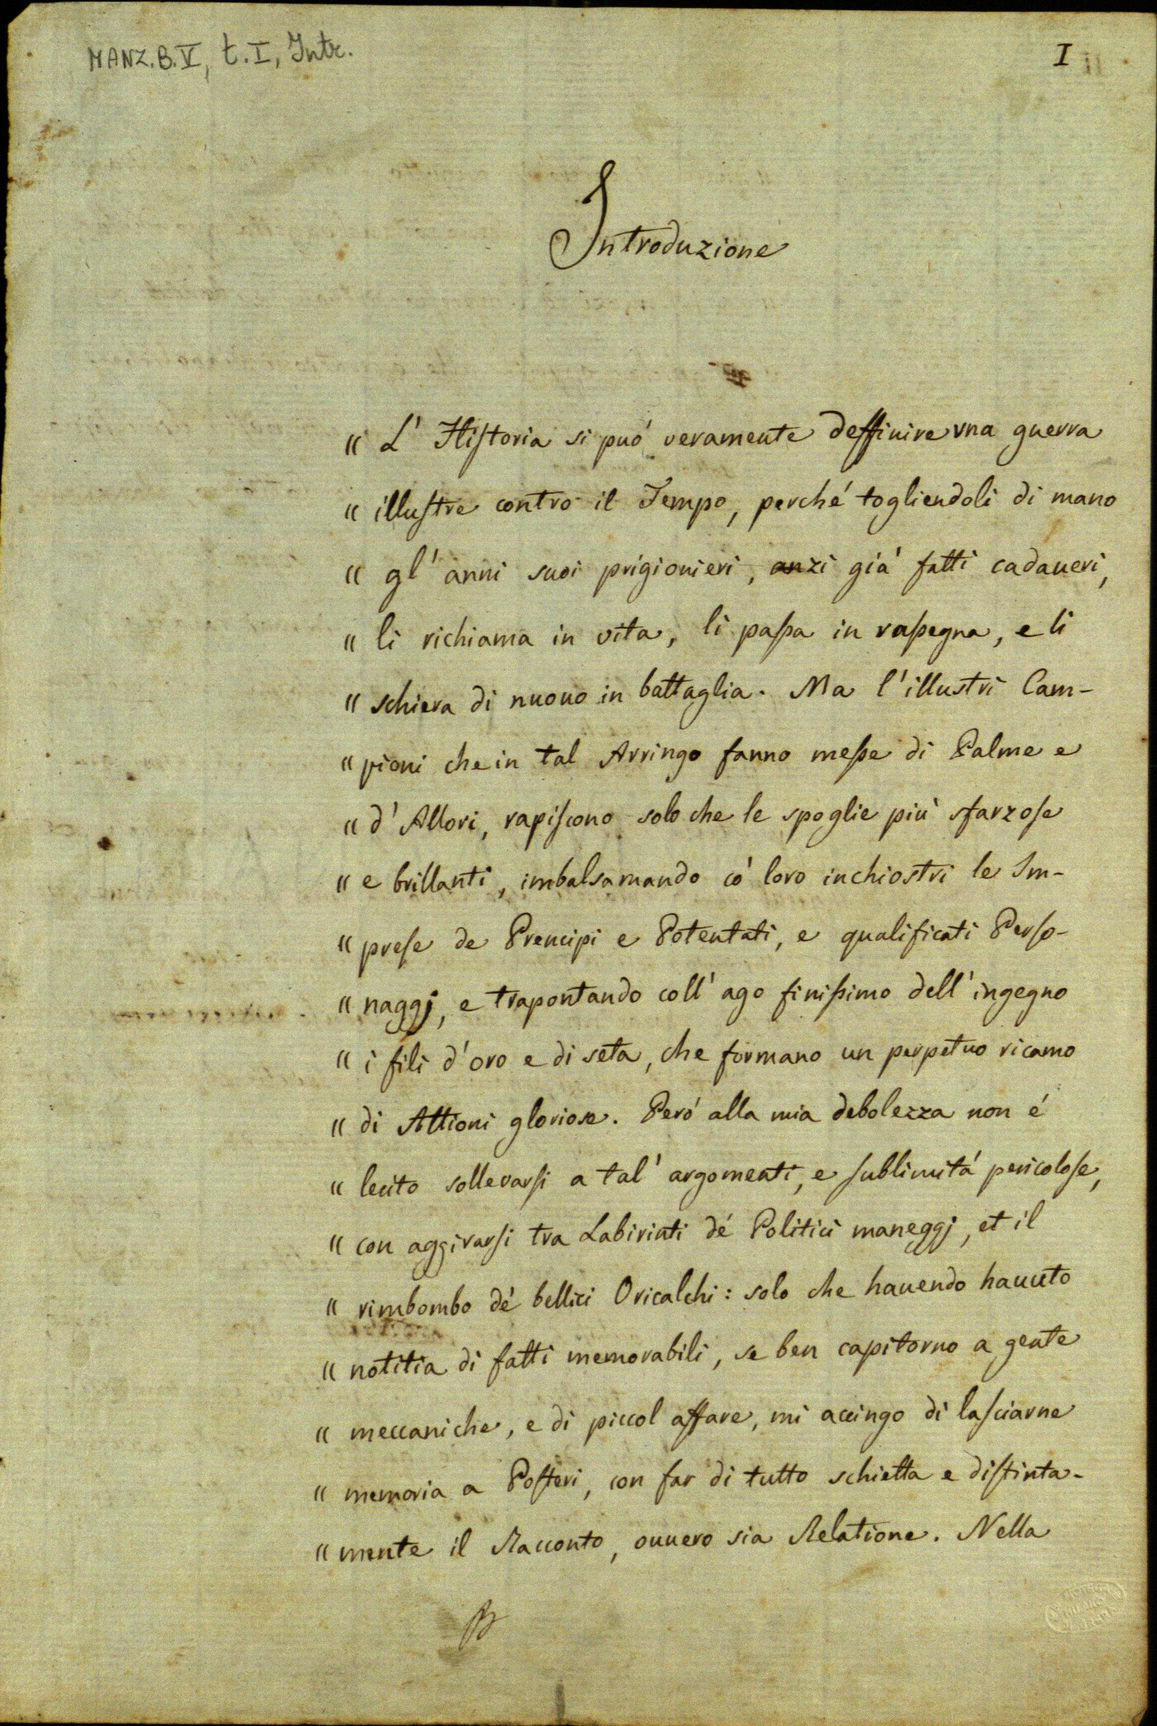 MANZ.B.V, t.I, Intr.
I
Introduzione
" L' Hiſtoria si puó veramente deffinire vna guerra
" illuſtre contro il Tempo, perché togliendoli di mano
" gl' anni suoi prigionieri, anzi giá fatti cadaueri,
" li richiama in vita, li paſsa in raſsegna, e li
" schiera di nuouo in battaglia. Ma l'illustri Cam-
" pioni che in tal Arringo fanno meſse di Palme e
" d'Allori, rapiſcono solo che le spoglie più sfarzoſe
" e brillanti, imbalsamando có loro inchiostri le Im-
" preſe de Prencipi e Potentati, e qualificati Perſo-
" naggj, e trapontando coll' ago finiſsimo dell' ingegno
" i fili d'oro e di seta, che formano un perpetuo ricamo
" di Attioni gloriose. Peró alla mia debolezza non é
" lecito sollevarſi a tal' argomenti, e ſublimitá pericoloſe,
" con aggirarſi tra Labirinti dé Politici maneggj, et il
" rimbombo dé bellici Oricalchi: solo che hauendo hauuto
" notitia di fatti memorabili, se ben capitorno a gente
" meccaniche, e di piccol affare, mi accingo di laſciarne
" memoria a Poſteri, con far di tutto schietta e diſtinta-
" mente il Racconto, ouuero sia Relatione. Nella